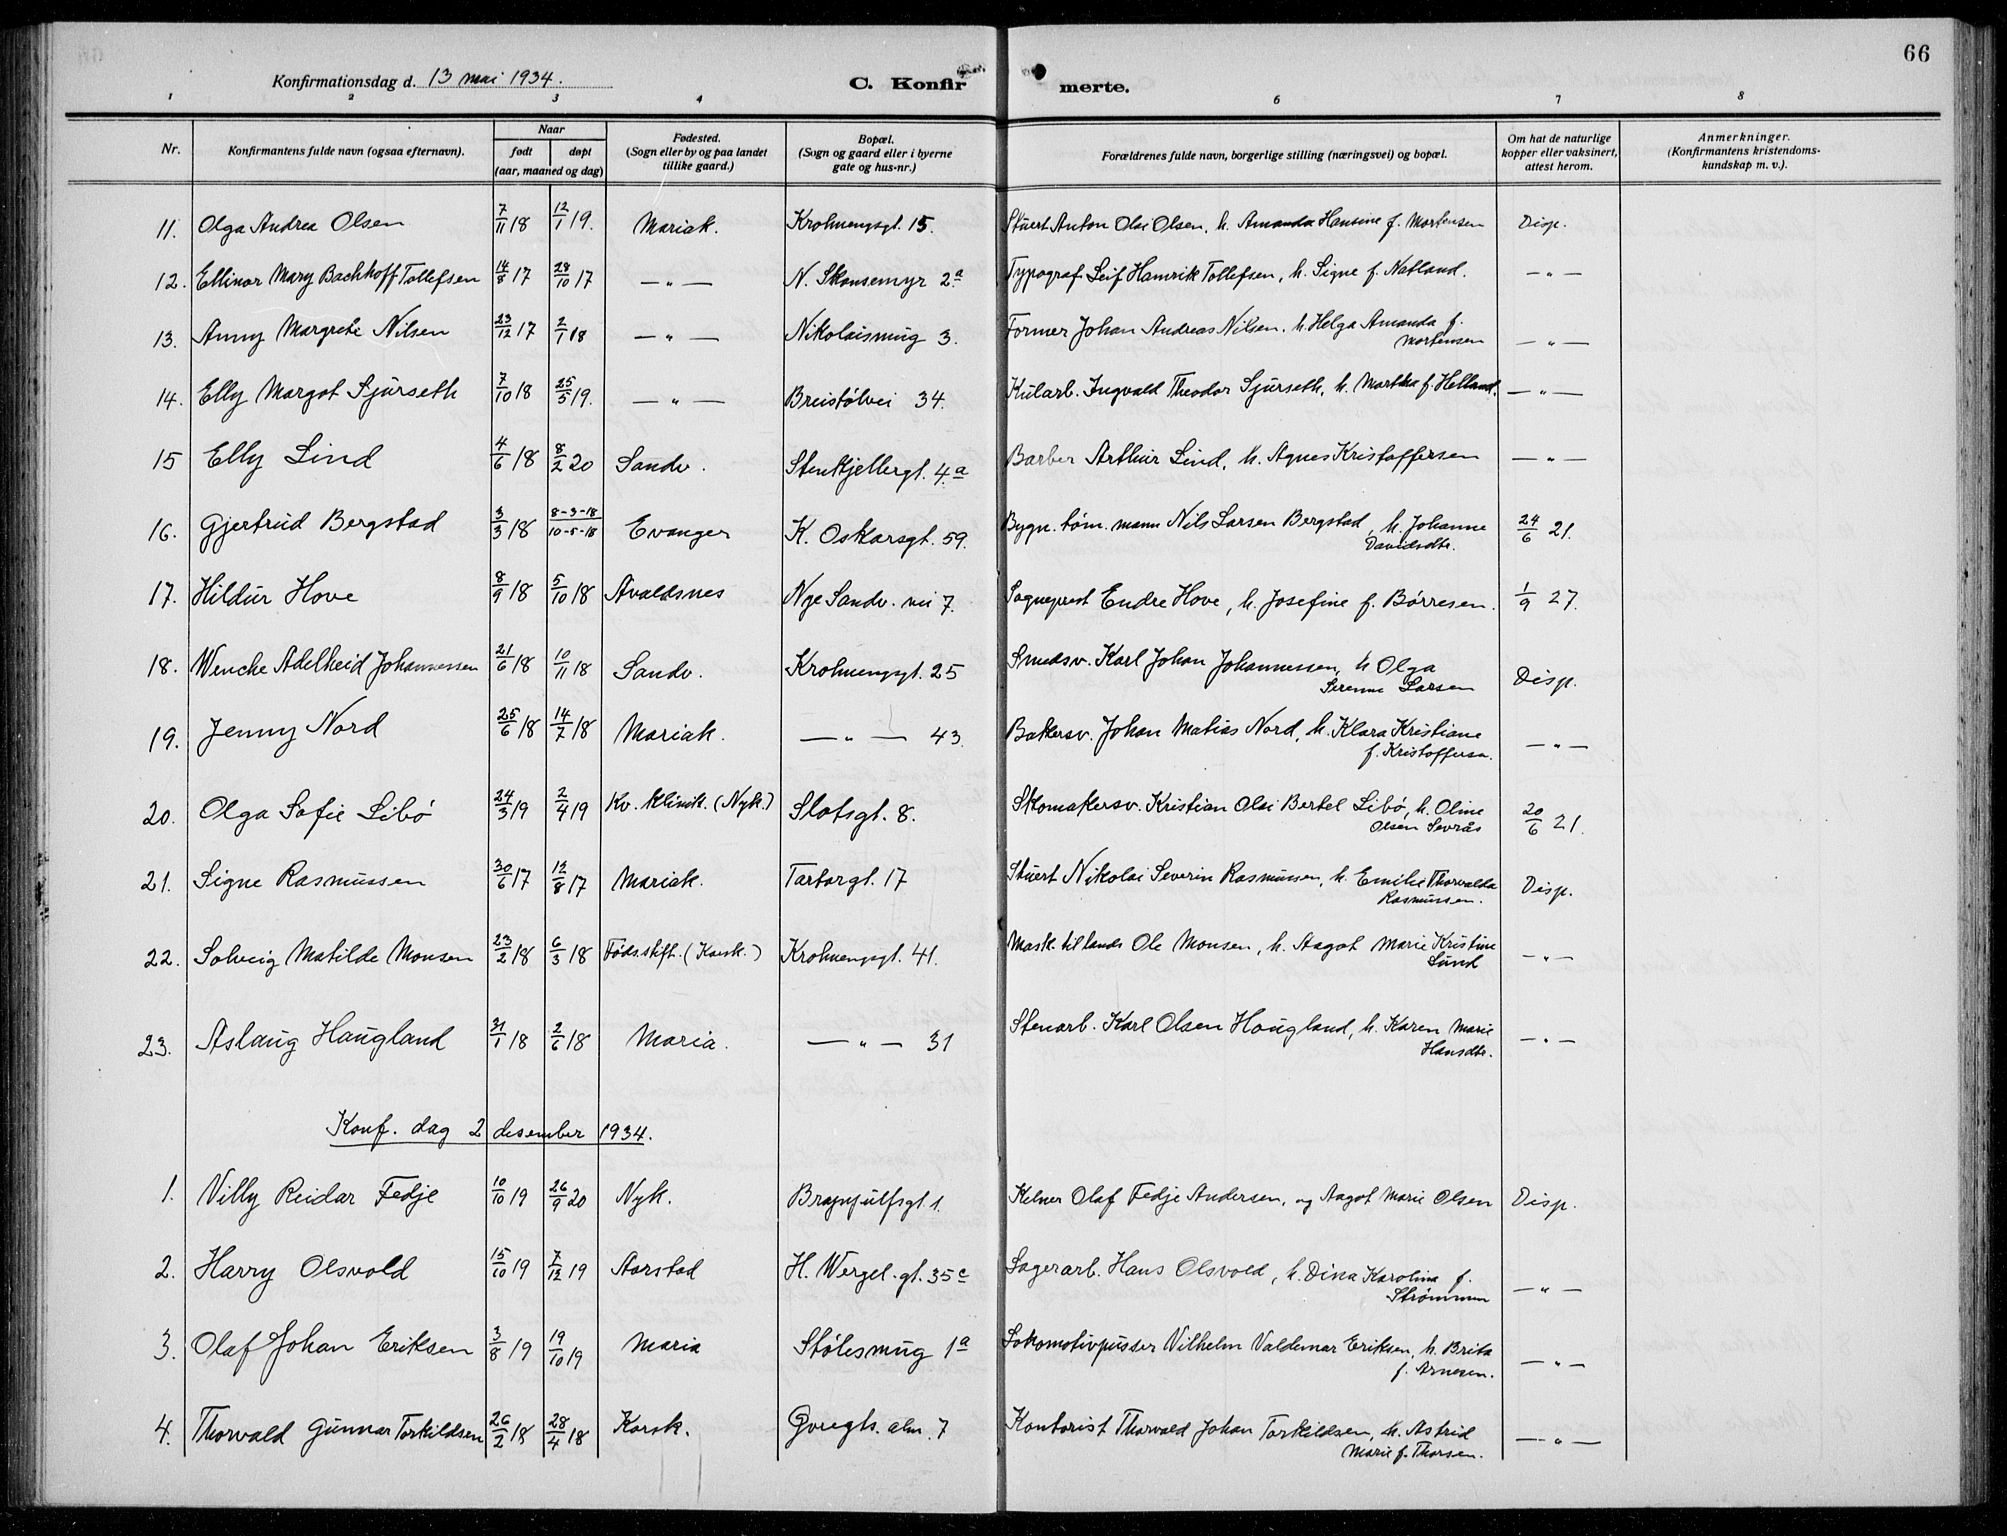 66
Konfirmationsdag d. 13 mai 1934.
C. Konfirmerte.
1 2 3 4 6 7 8
Nr. Konfirmantens fulde navn (ogsaa efternavn). Naar født døpt (aar, maaned og dag) Fødested. (Sogn eller by og paa landet tillike gaard.) Bopæl. (Sogn og gaard eller i byerne gate og hus-nr.) Forældrenes fulde navn, borgerlige stilling (næringsvei) og bopæl. Om hat de naturlige kopper eller vaksinert, attest herom. Anmerkninger. (Konfirmantens kristendoms-kundskap m. v.).
11. Olga Andrea Olsen 7/11 18 12/1 19. Mariak. Krohnengsgt. 15. Stuert Anton Olai Olsen, h. Amanda Hansine f. Mortensen Disp.
12. Ellinor Mary Bachhoff Tollefsen 14/8 17 28/10 17 — " — N. Skansemyr 2a Typograf Leif Henrik Tollefsen, h. Signe f. Natland. — " —
13. Anny Margrete Nilsen 23/12 17 2/1 18 — " — Nikolaismug 3. Former Johan Andreas Nilsen. h. Helga Amanda f. Mortensen — " —
14. Elly Margot Sjurseth 7/10 18 25/5 19. — " — Breistølvei 34. Kularb. Ingvald Theodor Sjurseth, h. Martha f. Helland. — " —
15 Elly Lind 4/6 18 8/2 20 Sandv. Stenkjellergt. 4a Barber Arthur Lind, h. Agnes Kristoffersen — " —
16. Gjertrud Bergstad 3/3 18 8-3-18/10-5-18 Evanger K. Oskarsgt. 59. Bygn. tøm. mann Nils Larsen Bergstad, h. Johanne Davidsdtr. 24/6 21.
17. Hildur Hove 8/9 18 5/10 18 Avaldsnes Nye Sandv. vei 7. Sogneprest Endre Hove, h. Josefine f. Børresen. 1/9 27.
18. Wenche Adelheid Johannessen 21/6 18 10/11 18 Sandv. Krohnengsgt. 25 Smedsv. Karl Johan Johannessen, h Olga Serenne Larsen Disp.
19. Jenny Nord 25/6 18 14/7 18 Mariak. — " — 43. Bakersv. Johan Matias Nord, h. Klara Kristiane f. Kristoffersen. — " —
20. Olga Sofie Libø 24/3 19 2/4 19 Kv. klinik. (Nyk.) Slotsgt. 8. Skomakersv. Kristian Olai Bertel Libø, h. Oline Olsen Sevrås 20/6 21.
21. Signe Rasmussen 30/6 17 12/8 17 Mariak. Tartargt. 17 Stuert Nikolai Severin Rasmussen, h. Emilie Thorvalda Rasmussen. Disp.
22. Solveig Matilde Monsen 23/2 18 6/3 18 Føds.stift. (Korsk.) Krohnengsgt. 41. Mask. til lands Ole Monsen, h. Aagot Marie Kristine Lund — " —
23. Aslaug Haugland 31/1 18 2/6 18 Maria. — " — 31 Stenarb. Karl Olsen Haugland, h. Karen Marie Hansdtr. — " —
Konf. dag 2 desember 1934.
1. Villy Reidar Fedje 10/10 19 26/9 20 Nyk. Brynjulfsgt. 1. Kelner Olaf Fedje Andersen, og Aagot Marie Olsen Disp.
2. Harry Olsvold 15/10 19 7/12 19 Aarstad H. Wergel. gt. 35c Lagerarb. Hans Olsvold, h. Dina Karolina f. Strømmen — " —
3. Olaf Johan Eriksen 3/8 19 19/10 19 Maria Stølesmug 1a Lokomotivpusser Vilhelm Valdemar Eriksen, h. Brita f. Arnesen. — " —
4. Thorvald Gunnar Torkildsen 26/2 18 28/4 18 Korsk. alm. 7 Kontorist Thorvald Johan Torkildsen, h. Astrid Marie f. Thorsen. — " —